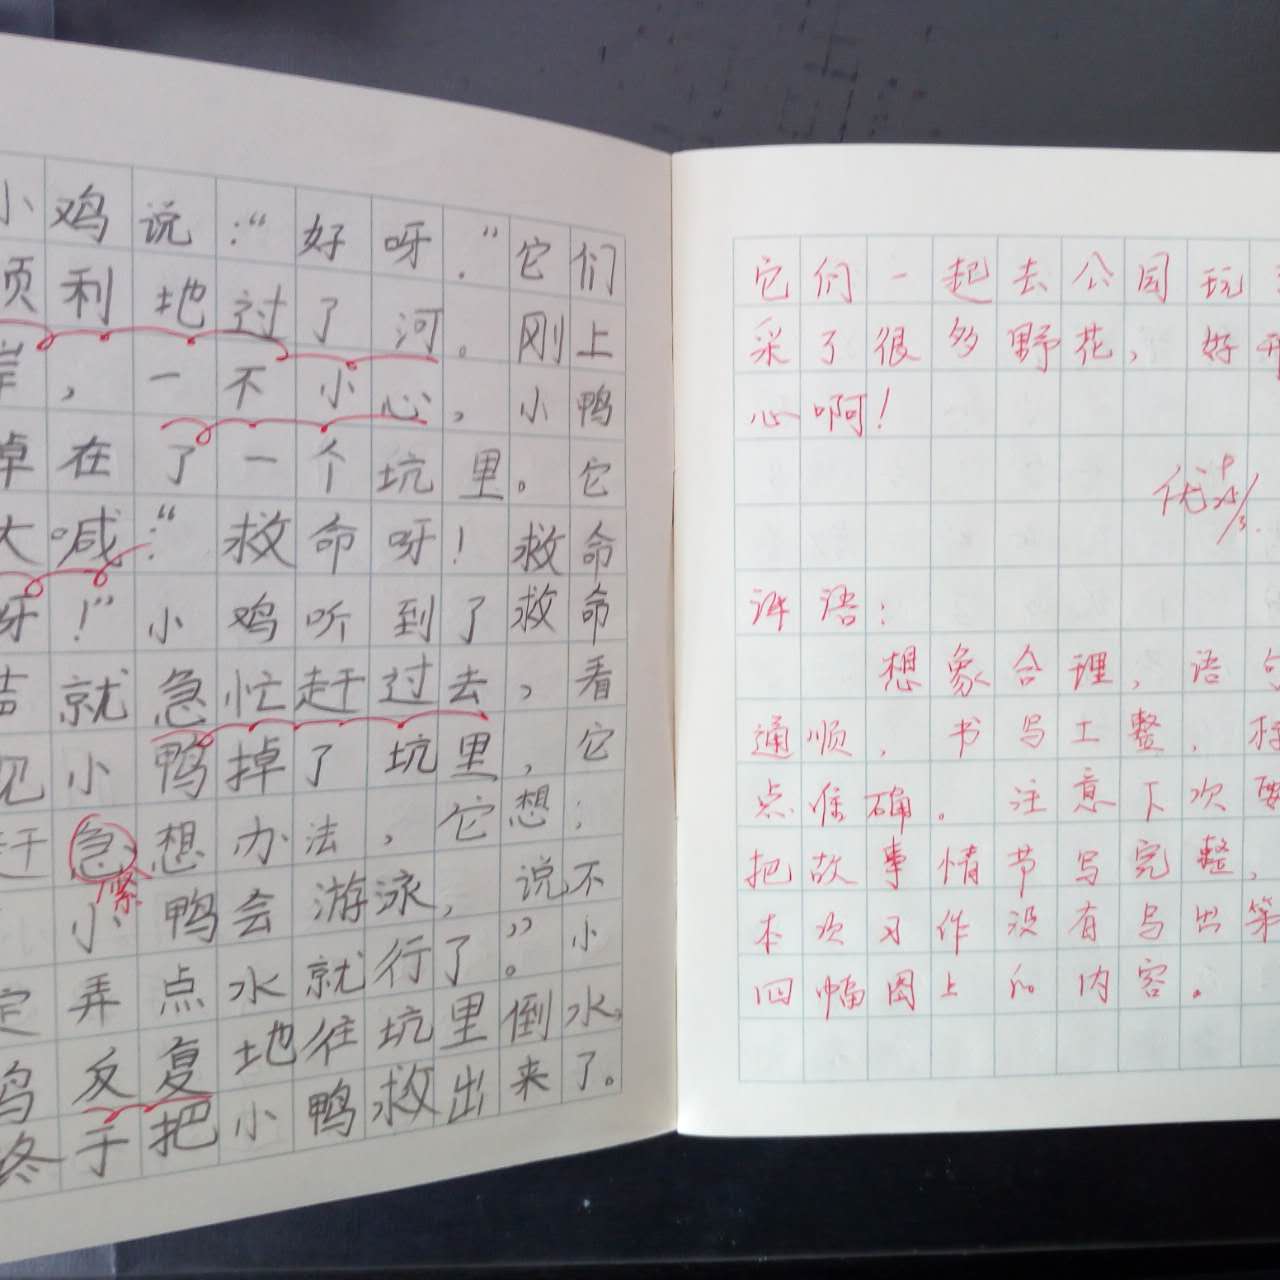 小鸡说：“好呀．”它们
顺利地过了河。刚上
岸，一不小心，小鸭
掉在了一个坑里。它
大喊：“救命呀！救命
呀！”小鸡听到了救命
就急忙赶过去，看
见小鸭掉了坑里，它
赶急想办法，它想：
紧
小鸭会游泳，说不
定弄点水就行了。”小
鸡反复地往坑里倒水。
终于把小鸭救出来了。
它们一起去公园玩
采了很多野花，好开
心啊！
优
评语：
想象合理，语句
通顺，书写工整，标
点准确。注意下次要
把故事情节写完整，
本次习作没有写出第
四幅图上的内容。